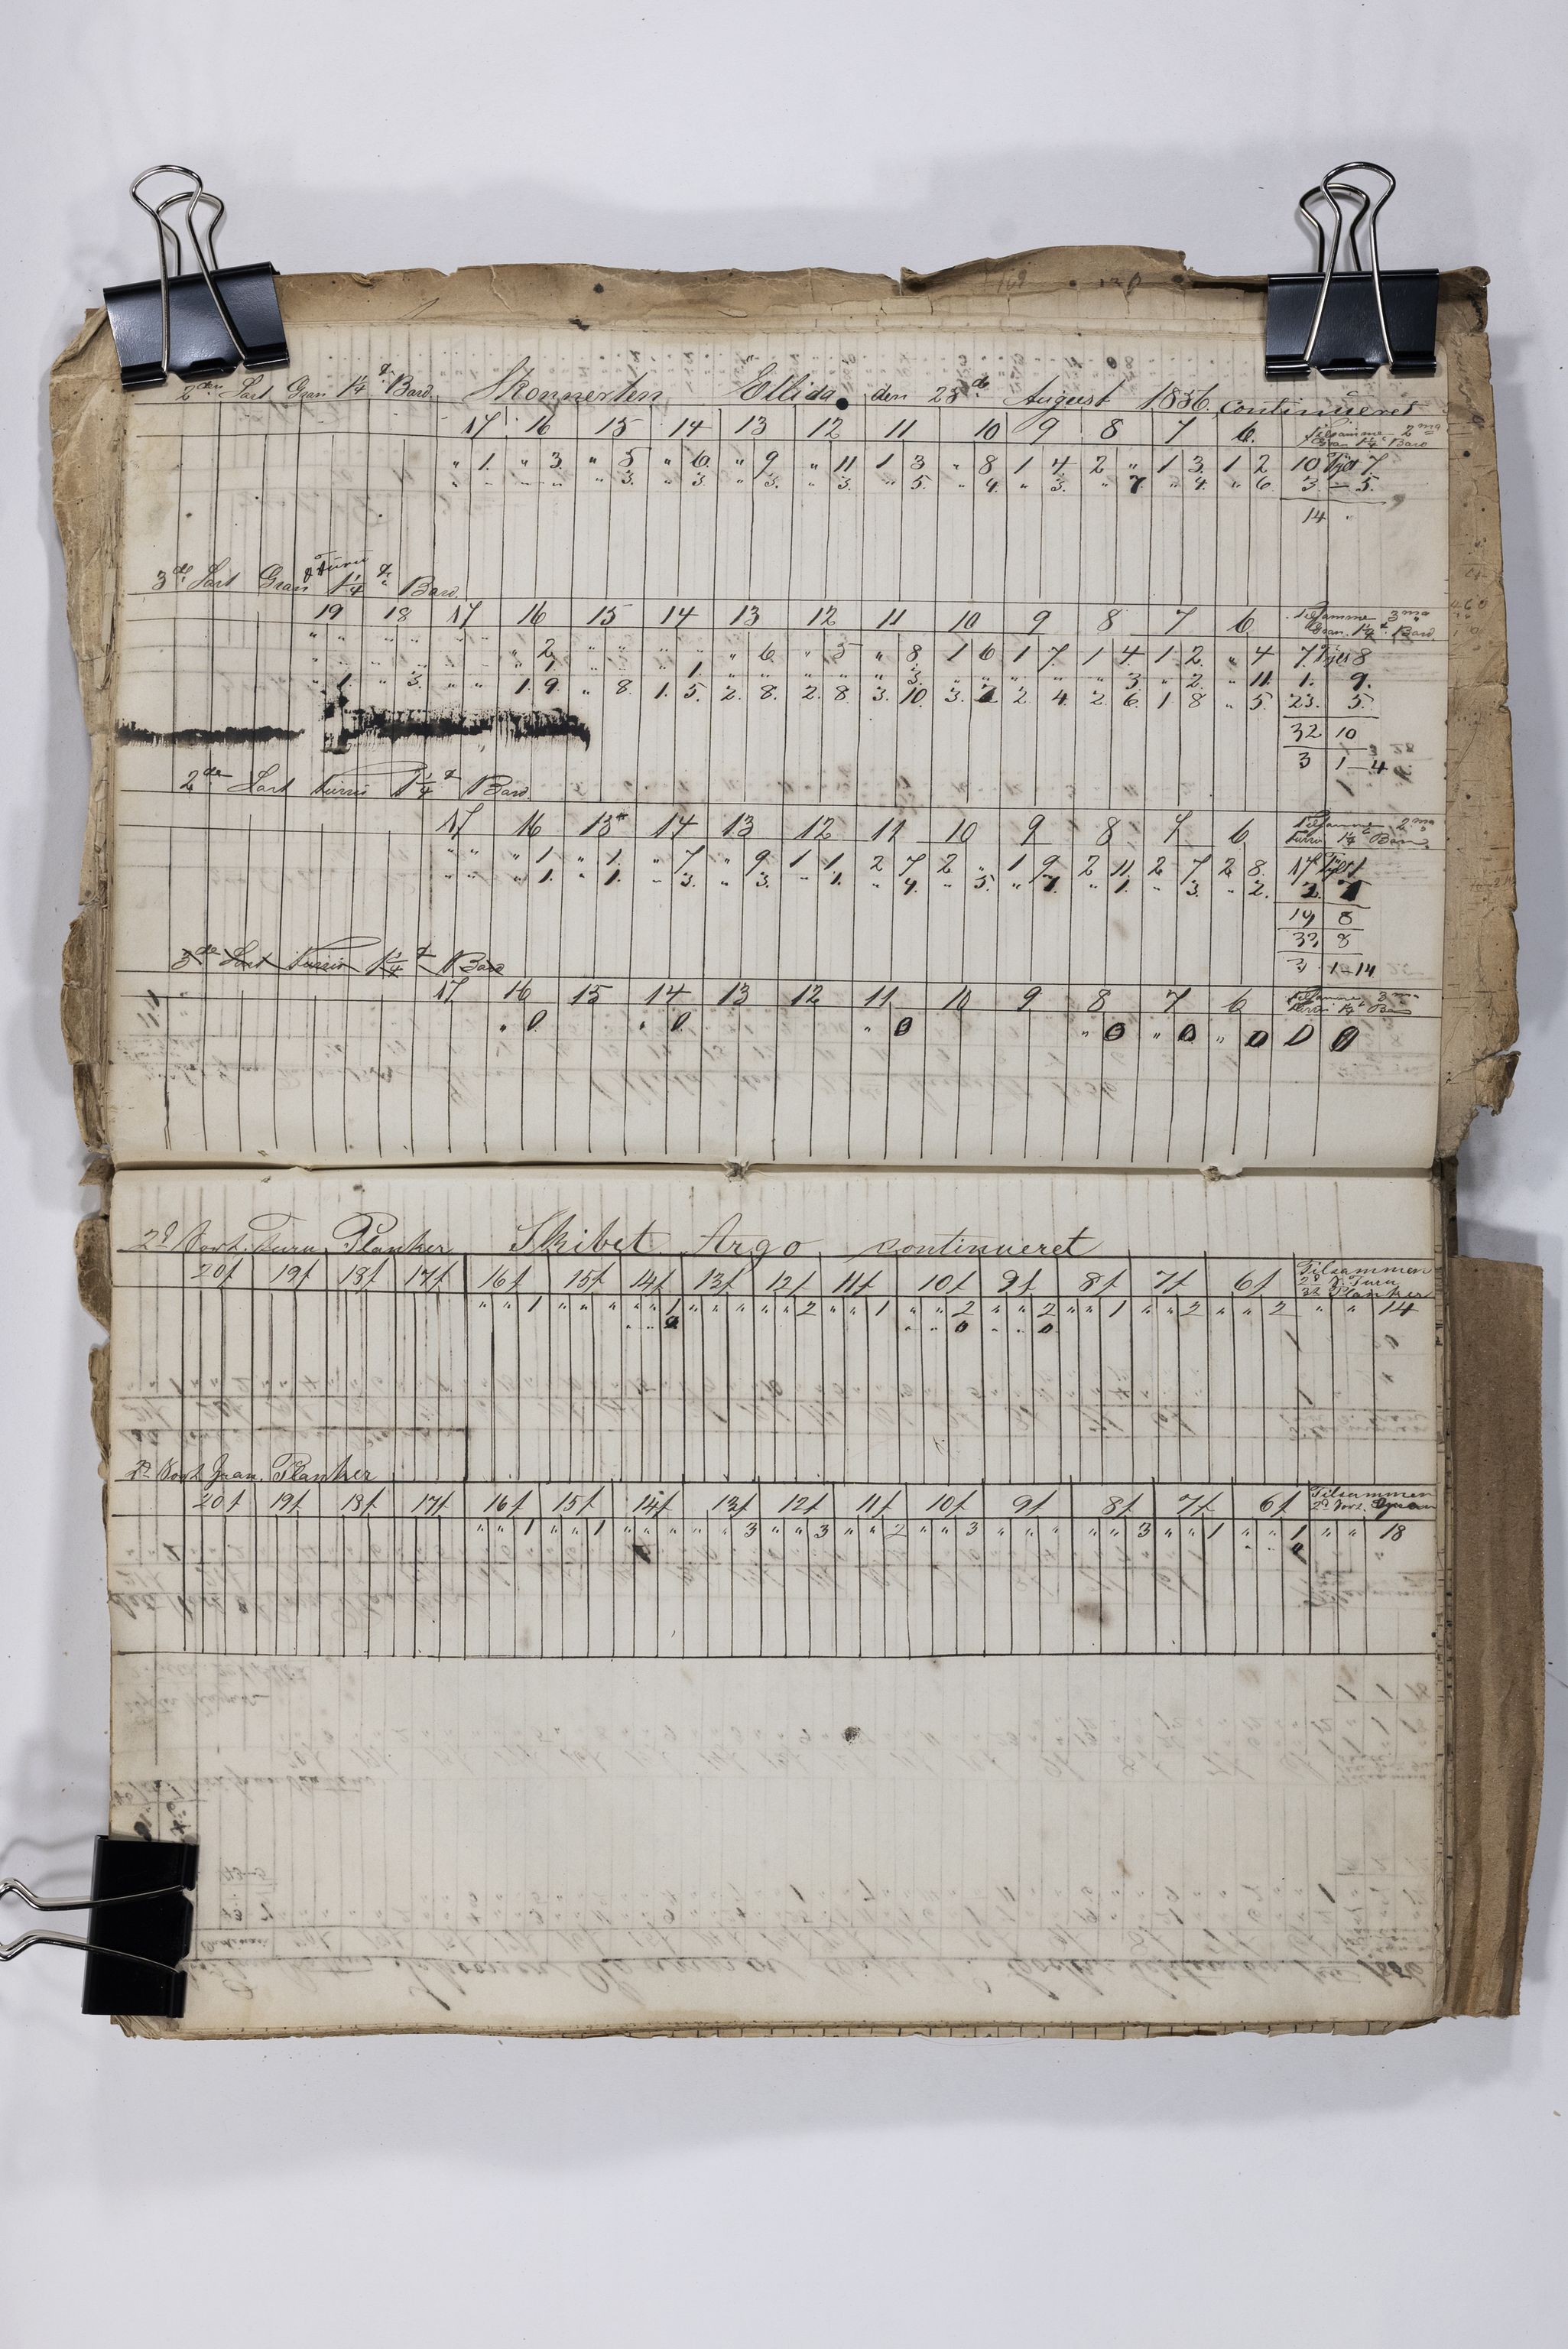 2den Sort Gran 1¼ t. Bord Skonnerten Ellida den 25de August 1836 continueret
17 16 15 14 13 12 11 10 9 8 7 6 Tilsamme 2ma Gran 1¼ t Bord
" 1. " 3. " 5 " 6. " 9 " 11 1 3 " 8 1 4 2 " 1 3. 1 2 10 Tylt 7.
" " " " " 3. " 3 " 3. " 3. " 5. " 4. " 3. " 7. " 4. " 6 3 – 5.
14 "
3de Sort Gran & Furu 1¼ t. Bord
19 18 17 16 15 14 13 12 11 10 9 8 7 6 Tilsamme 3ma Gran 1¼ t. Bord
" " " " " " " 2 " " " " " 6 " 5 " 8 1 6 1 7. 1 4. 1 2. " 4 7 Tylt 8
" " " " " " " 1. " " " 1. " " " " " 3. " " " " " 3 " 2. " 11. 1. 9.
" 1. " 3. " " 1. 9. " 8. 1. 5. 2. 8. 2. 8 3. 10. 3. 2. 4 2. 6. 1 8 " 5. 23. 5.
32 10
3 1–4
2de Sort Furru 1¼ t Bord
17 16 15 14 13 12 11 10 9 8 7 6 Tilsamme 2ma Furu 1¼ t Bord
" " " 1 " 1. " 7 " 9 1 1. 2 7 2 " 1 9 2 11. 2 7 2 8. 17 Tylt 1
" " " 1. " 1. " 3. " 3. " 1. " 4. " 5. " " 1. " 3. " 2.
19 8
33 8
3 1–14
3de Sort Furru 1¼ t Bord
17 16 15 14 13 12 11 10 9 8 7 6 Tilsamme 3ma Furu 1¼ t Bord
" 0. " 0. " 0 " 0 " 0 " 0 0 0
2d Sort Furu Planker Skibet Argo continueret
20f 19f 18f 17f 16f 15f 14f 13f 12f 11f 10f 9f 8f 7f 6f Tilsammen 2d S. Furu Planker
" " 1 " " " " " 1 " " " " " 2 " " 1 " " 2 " " 2 " " 1 " " 2 " " 2 " " 14
" " 0 " " 0 " " 0
2d Sort Gran Planker
20f 19f 18f 17f 16f 15f 14f 13f 12f 11f 10f 9f 8f 7f 6f Tilsammen 2d Sort Gran
" " 1 " " 1 " " " " " 3 " " 3 " " 2 " " 3 " " " " " 3 " " 1 " " 1 " " 18